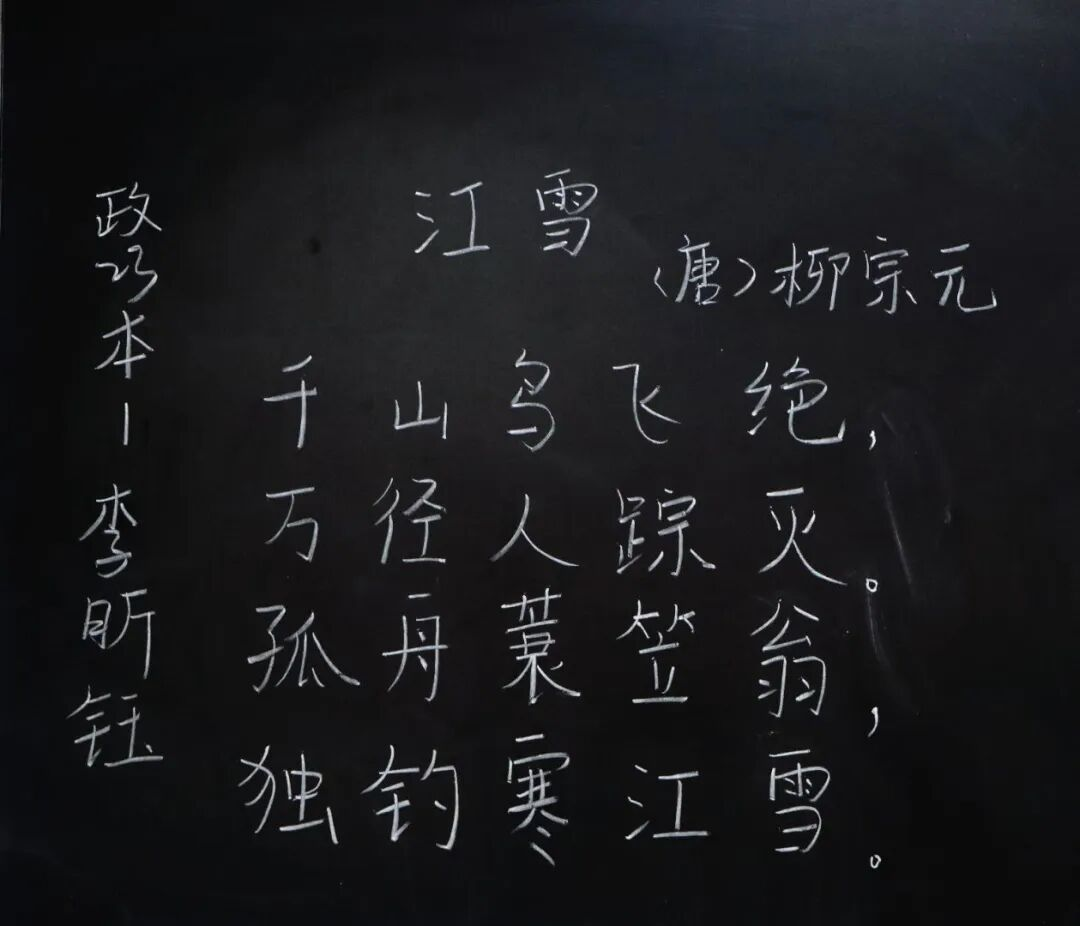 江雪
（唐）柳宗元
千山鸟飞绝，
万径人踪灭。
孤舟蓑笠翁，
独钓寒江雪。
政23本1 李昕钰